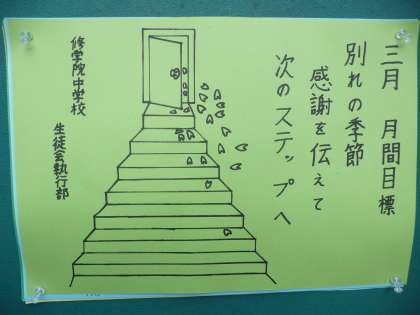 三月 月間目標
別れの季節
感謝を伝えて
次のステップへ
修学院中学校
生徒会執行部